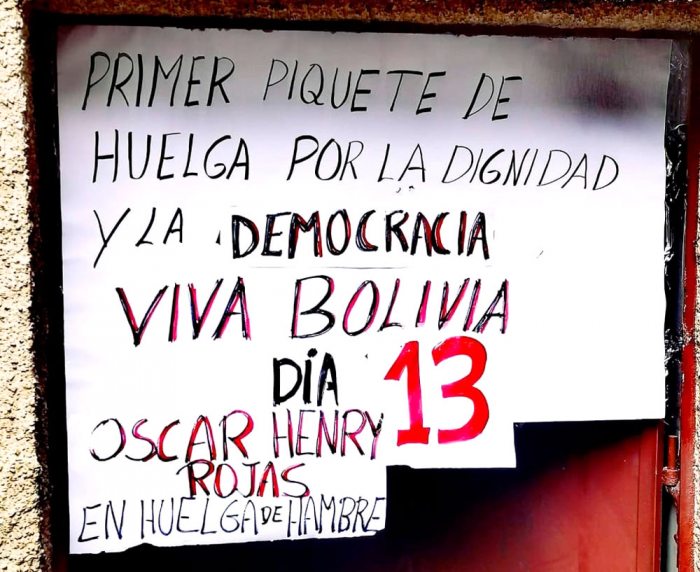 PRIMER PIQUETE DE
HUELGA POR LA DIGNIDAD
Y LA DEMOCRACIA
VIVA BOLIVIA
DÍA 13
OSCAR HENRY
ROJAS
EN HUELGA DE HAMBRE